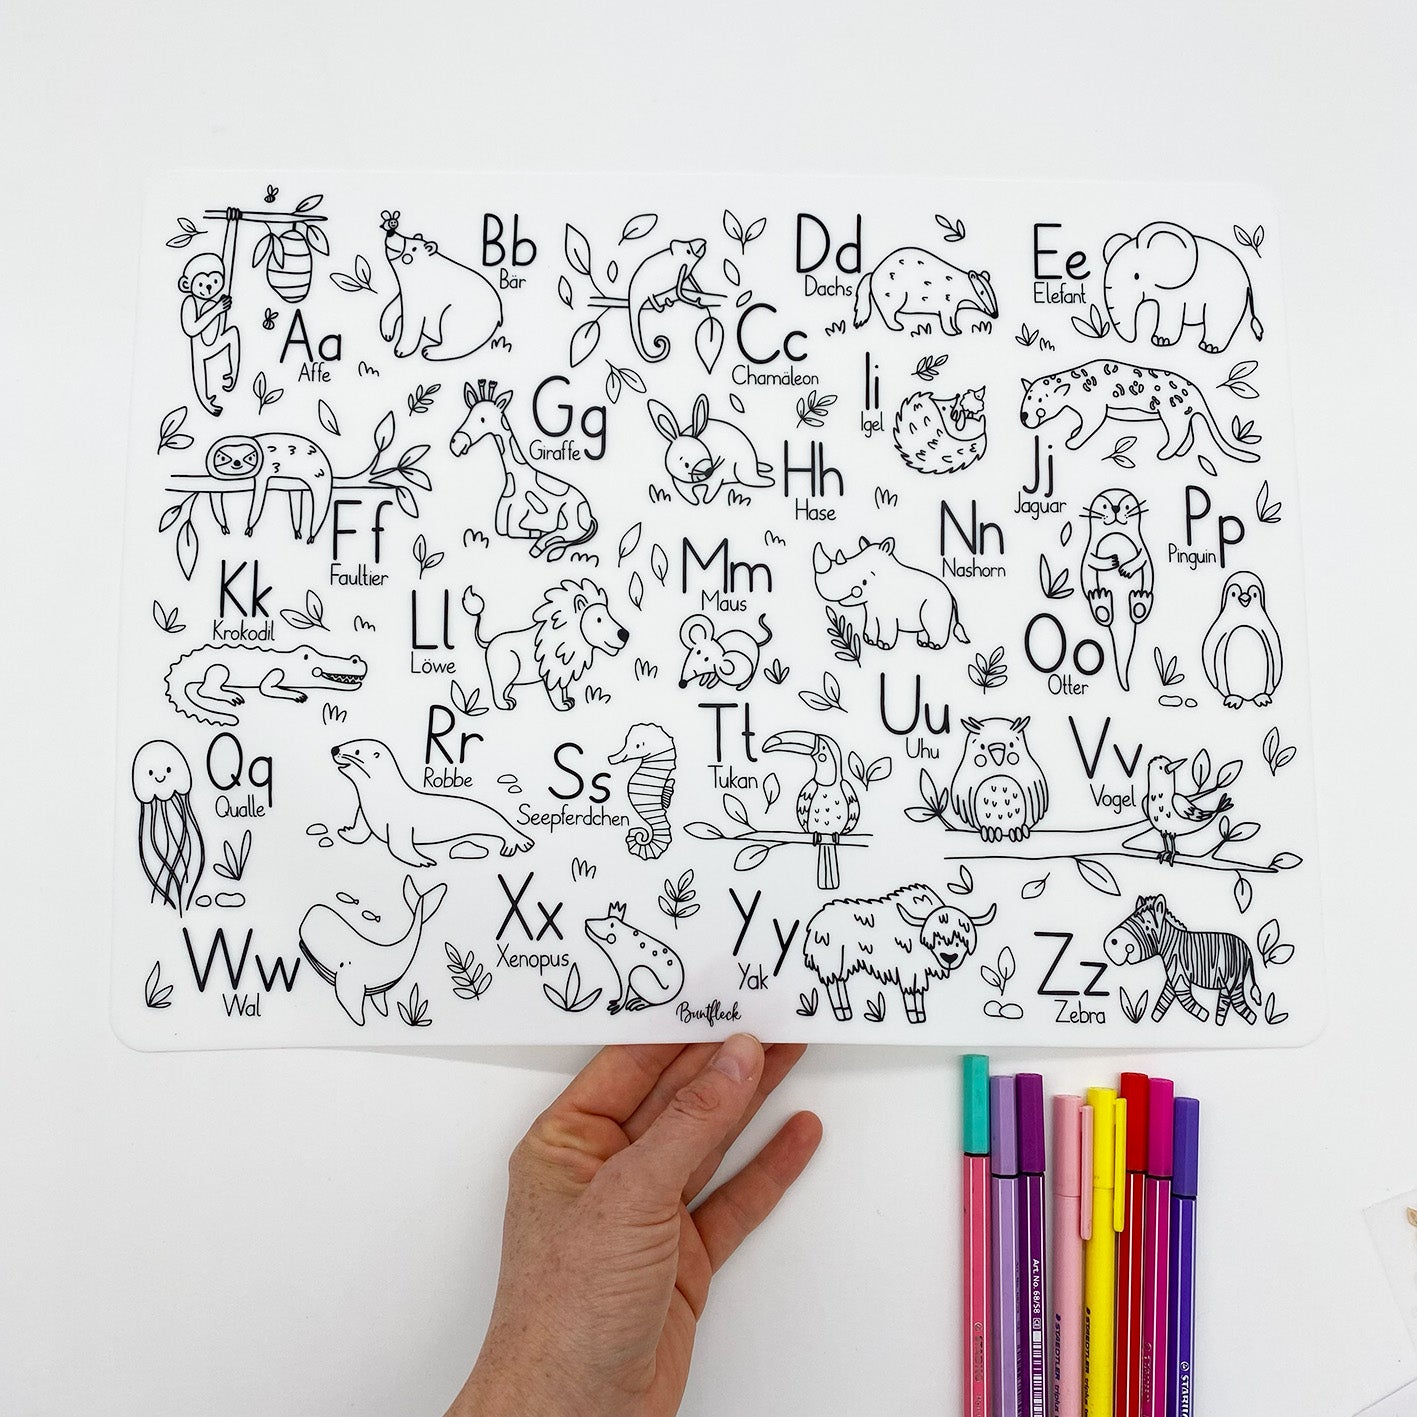 Aa
Affe
Bb
Bär
Cc
Chamäleon
Dd
Dachs
Ee
Elefant
Ff
Faultier
Gg
Giraffe
Hh
Hase
Ii
Igel
Jj
Jaguar
Kk
Krokodil
Ll
Löwe
Mm
Maus
Nn
Nashorn
Oo
Otter
Pp
Pinguin
Qq
Qualle
Rr
Robbe
Ss
Seepferdchen
Tt
Tukan
Uu
Uhu
Vv
Vogel
Ww
Wal
Xx
Xenopus
Yy
Yak
Zz
Zebra
Buntfleck
Art. No. 68/58
STAEDTLER
STAEDTLER